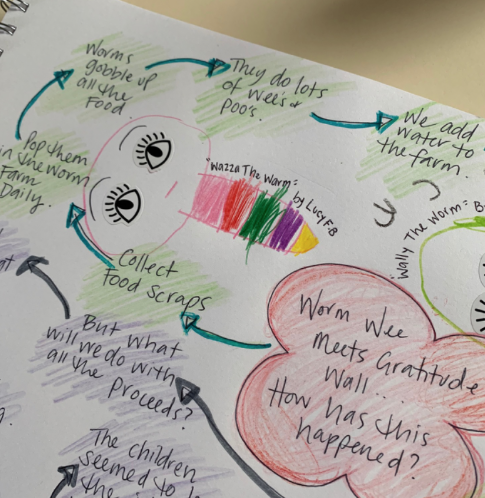 Worms
gobble up
all the
Food.
They do lots
of wee's &
Poo's.
We add
water to
the farm.
Pop them
in the worm
Farm
Daily.
"Wazza The Worm"
by Lucy F.B
"Wally The Worm" B
Collect
Food Scraps
Worm Wee
meets Gratitude
Wall...
How has this
happened?
But what
will we do with
all the proceeds?
The children
seemed to